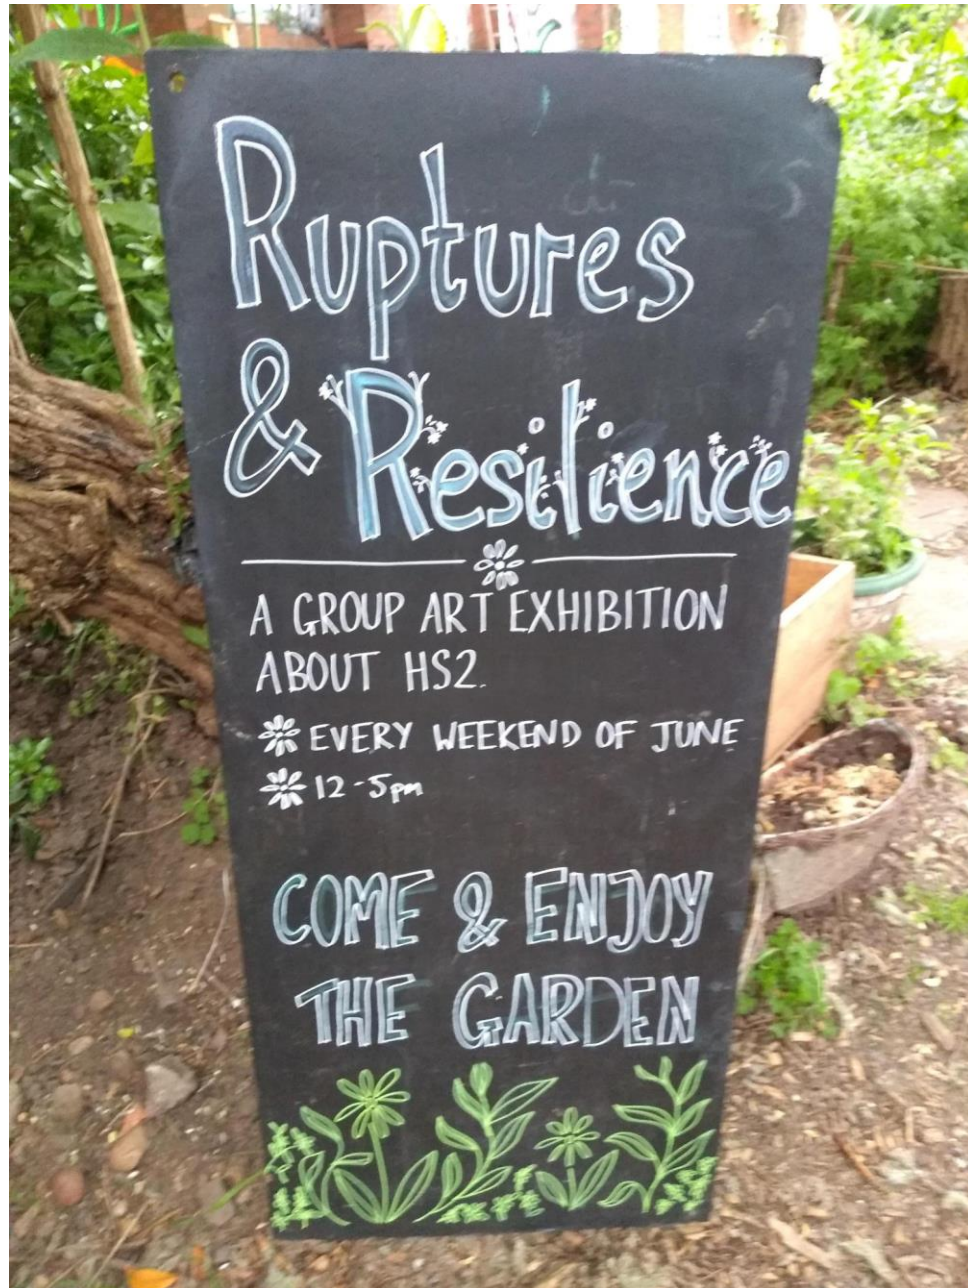 Ruptures
& Resilience
A GROUP ART EXHIBITION
ABOUT HS2.
EVERY WEEKEND OF JUNE
12-5pm
COME & ENJOY
THE GARDEN